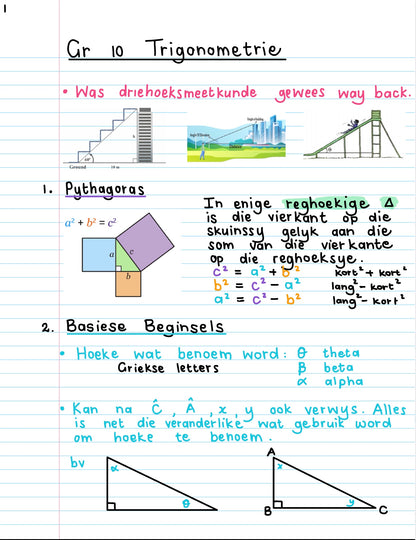 1
Gr 10 Trigonometrie
• Was driehoeksmeetkunde gewees way back.
Ground
10 m
1. Pythagoras
a² + b² = c²
a
c
b
In enige reghoekige Δ
is die vierkant op die
skuinssy gelyk aan die
som van die vierkante
op die reghoeksye.
c² = a² + b² kort² + kort²
b² = c² - a² lang² - kort²
a² = c² - b² lang² - kort²
2. Basiese Beginsels
• Hoeke wat benoem word: θ theta
Griekse letters β beta
α alpha
• Kan na Ĉ, Â, x, y ook verwys. Alles
is net die veranderlike wat gebruik word
om hoeke te benoem.
bv
α
θ
A
x
B
y
C